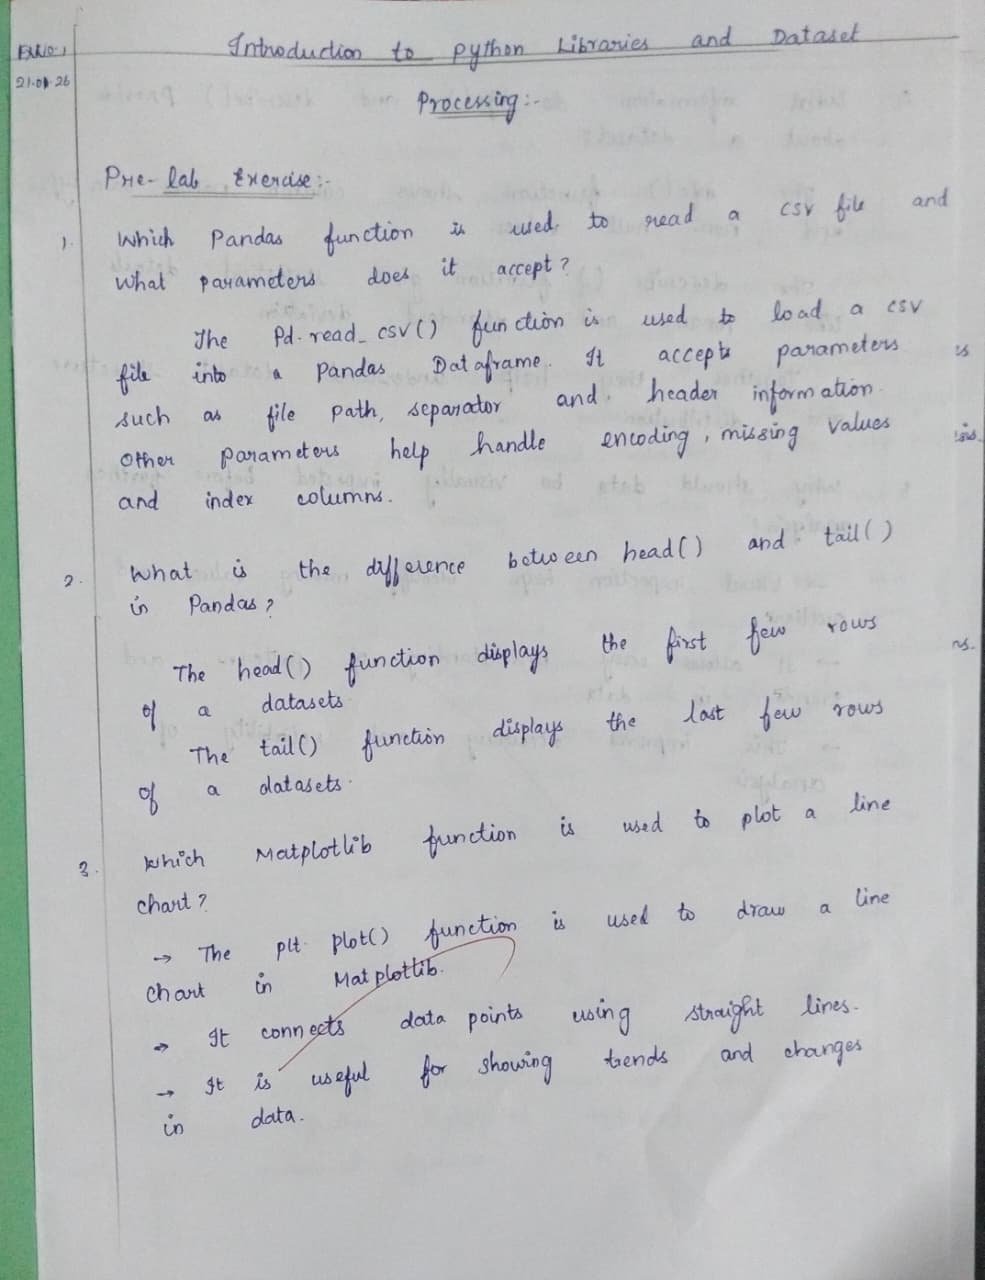 Ex.No:1
21.01.26
Introduction to Python Libraries and Dataset
Processing:-
Pre-lab Exercise:-
1. Which Pandas function is used to read a csv file and
what parameters does it accept?
The Pd.read_csv() function is used to load a csv
file into a Pandas Dataframe. It accepts parameters
such as file path, separator and header information.
Other parameters help handle encoding, missing values
and index columns.
2. What is the difference between head() and tail()
in Pandas?
The head() function displays the first few rows
of a datasets.
The tail() function displays the last few rows
of a datasets.
3. Which Matplotlib function is used to plot a line
chart?
→ The plt.plot() function is used to draw a line
chart in Matplotlib.
→ It connects data points using straight lines.
→ It is useful for showing trends and changes
in data.